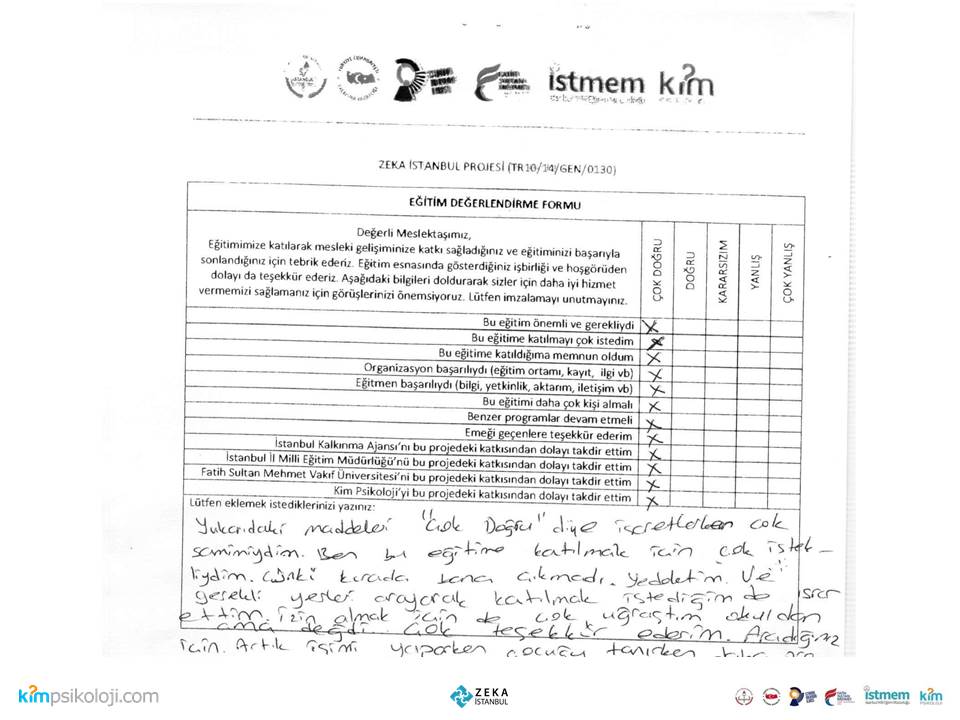 istmem kim
ZEKA İSTANBUL PROJESİ (TR10/14/GEN/0130)
EĞİTİM DEĞERLENDİRME FORMU
Değerli Meslektaşımız,
Eğitimimize katılarak mesleki gelişiminize katkı sağladığınız ve eğitiminizi başarıyla
sonlandığınız için tebrik ederiz. Eğitim esnasında gösterdiğiniz işbirliği ve hoşgörüden
dolayı da teşekkür ederiz. Aşağıdaki bilgileri doldurarak sizler için daha iyi hizmet
vermemizi sağlamanız için görüşlerinizi önemsiyoruz. Lütfen imzalamayı unutmayınız.
ÇOK DOĞRU
DOĞRU
KARARSIZIM
YANLIŞ
ÇOK YANLIŞ
Bu eğitim önemli ve gerekliydi
Bu eğitime katılmayı çok istedim
Bu eğitime katıldığıma memnun oldum
Organizasyon başarılıydı (eğitim ortamı, kayıt, ilgi vb)
Eğitmen başarılıydı (bilgi, yetkinlik, aktarım, iletişim vb)
Bu eğitimi daha çok kişi almalı
Benzer programlar devam etmeli
Emeği geçenlere teşekkür ederim
İstanbul Kalkınma Ajansı'nı bu projedeki katkısından dolayı takdir ettim
İstanbul İl Milli Eğitim Müdürlüğü'nü bu projedeki katkısından dolayı takdir ettim
Fatih Sultan Mehmet Vakıf Üniversitesi'ni bu projedeki katkısından dolayı takdir ettim
Kim Psikoloji'yi bu projedeki katkısından dolayı takdir ettim
Lütfen eklemek istediklerinizi yazınız:
Yukarıdaki maddeleri "Çok Doğru" diye işaretlerken çok
samimiydim. Ben bu eğitime katılmak için çok istek-
liydim. Çünkü kurada bana çıkmadı. Ve
gerekli yerleri arayarak katılmak istediğim de ısrar
ettim. İzin almak için de çok uğraştım okuldan
ama değdi. Çok teşekkür ederim. Aradığınız
için. Artık işimi yaparken çocuğu tanırken
kimpsikoloji.com
ZEKA
İSTANBUL
istmem
kim